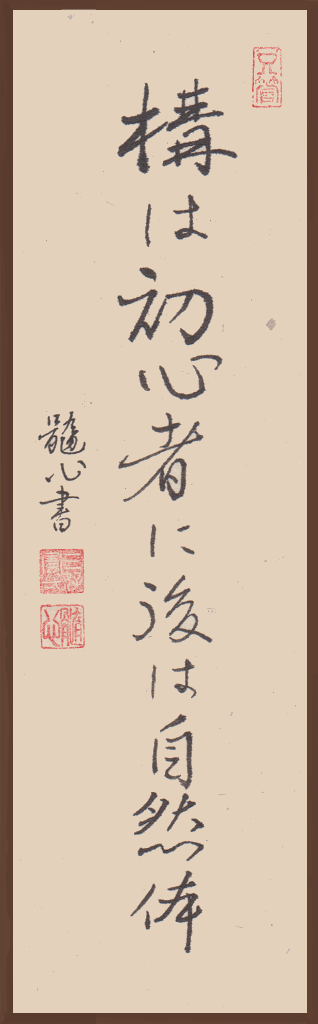 只管
構は初心者に後は自然体
髓心書